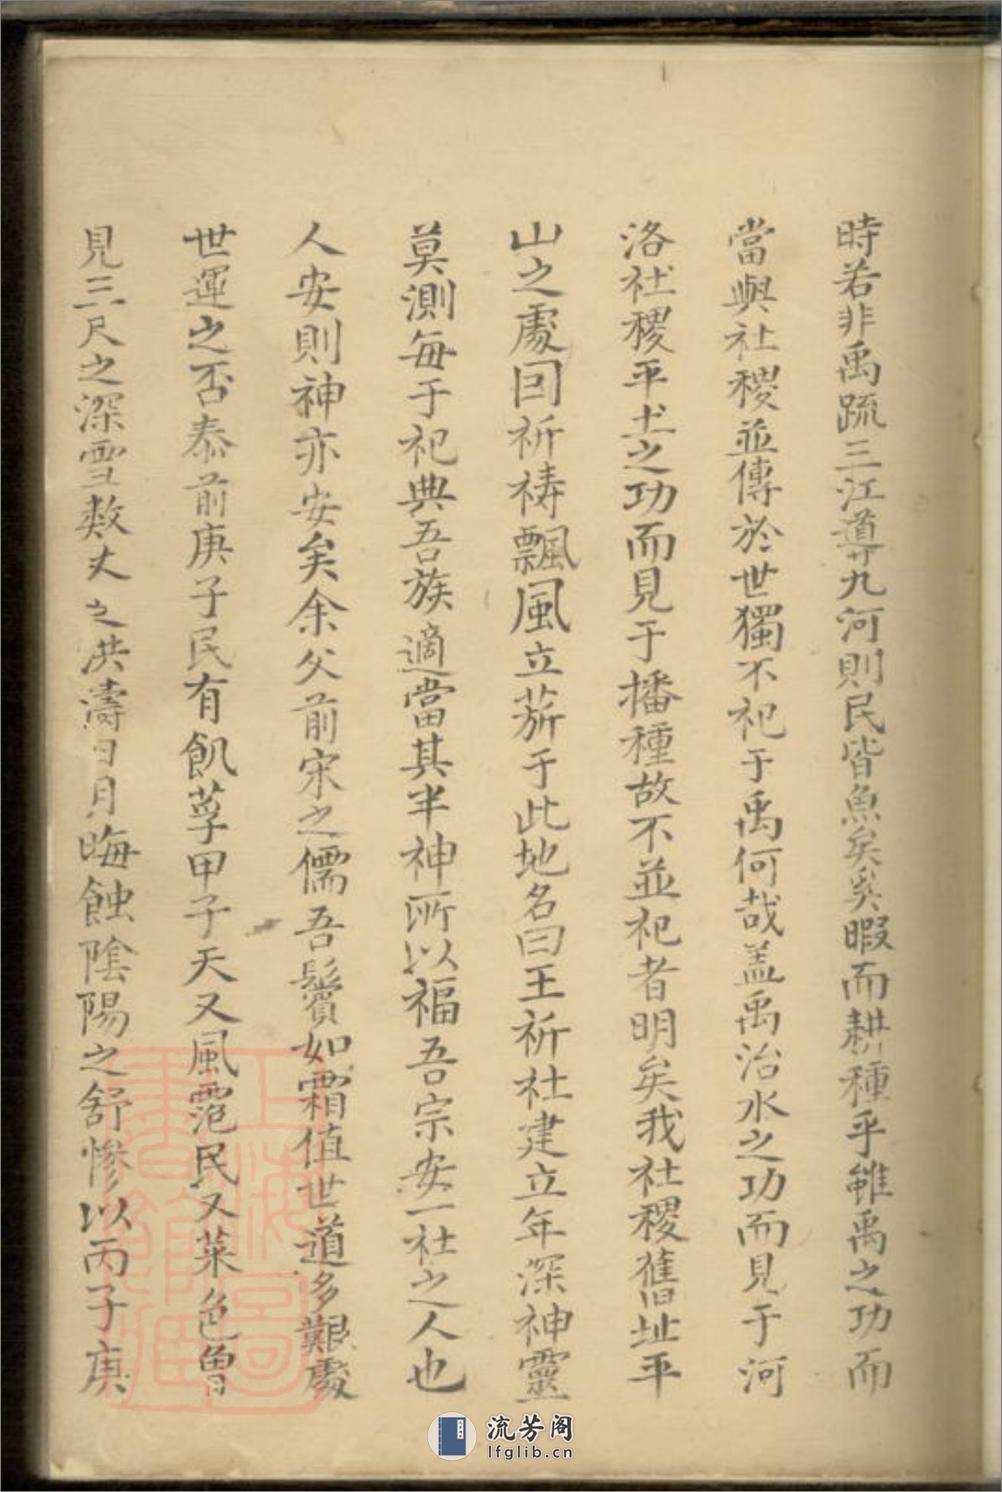 時若非禹疏三江導九河則民皆魚矣奚暇而耕種乎雖禹之功而
當與社稷並傳於世獨不祀于禹何哉盖禹治水之功而見于河
洛社稷平土之功而見于播種故不並祀者明矣我社稷舊址平
山之處回祈祷飄風立祈于此地名曰王祈社建立年深神靈
莫測每于祀典吾族適當其半神所以福吾宗安一社之人也
人安則神亦安矣余父前宋之儒吾鬢如霜值世道多艱處
世運之否泰前庚子民有飢莩甲子天又風雹民又菜色曾
見三尺之深雪数丈之洪濤日月晦蝕陰陽之舒惨以丙子庚
上海圖書館藏
流芳阁
lfglib.cn